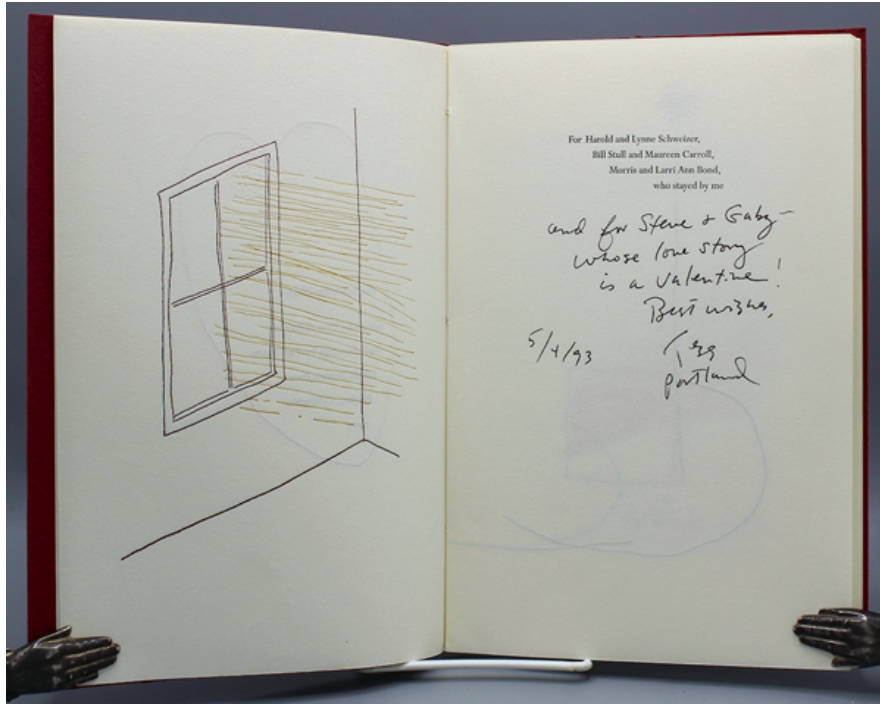 For Harold and Lynne Schweizer,
Bill Stull and Maureen Carroll,
Morris and Larri Ann Bond,
who stayed by me
and for Steve & Gaby –
whose love story
is a valentine!
Best wishes,
5/4/93
Tess
Portland